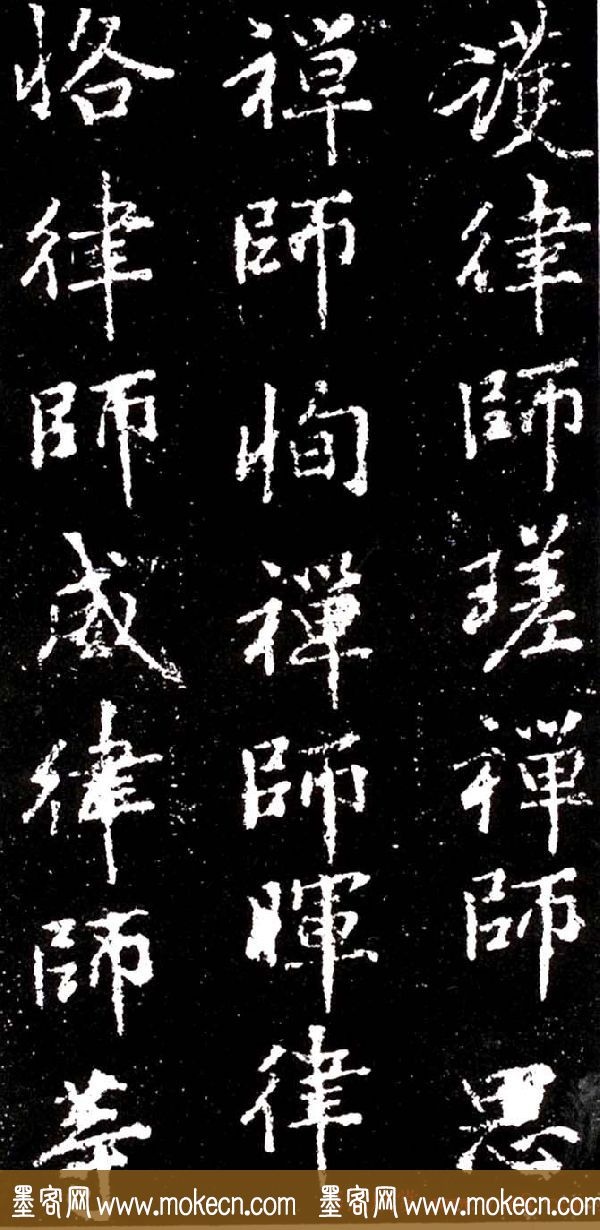 護律師瑳禪師思
禪師恂禪師暉律
恪律師威律師等
墨客网 www.mokecn.com 墨客网 www.mokecn.com